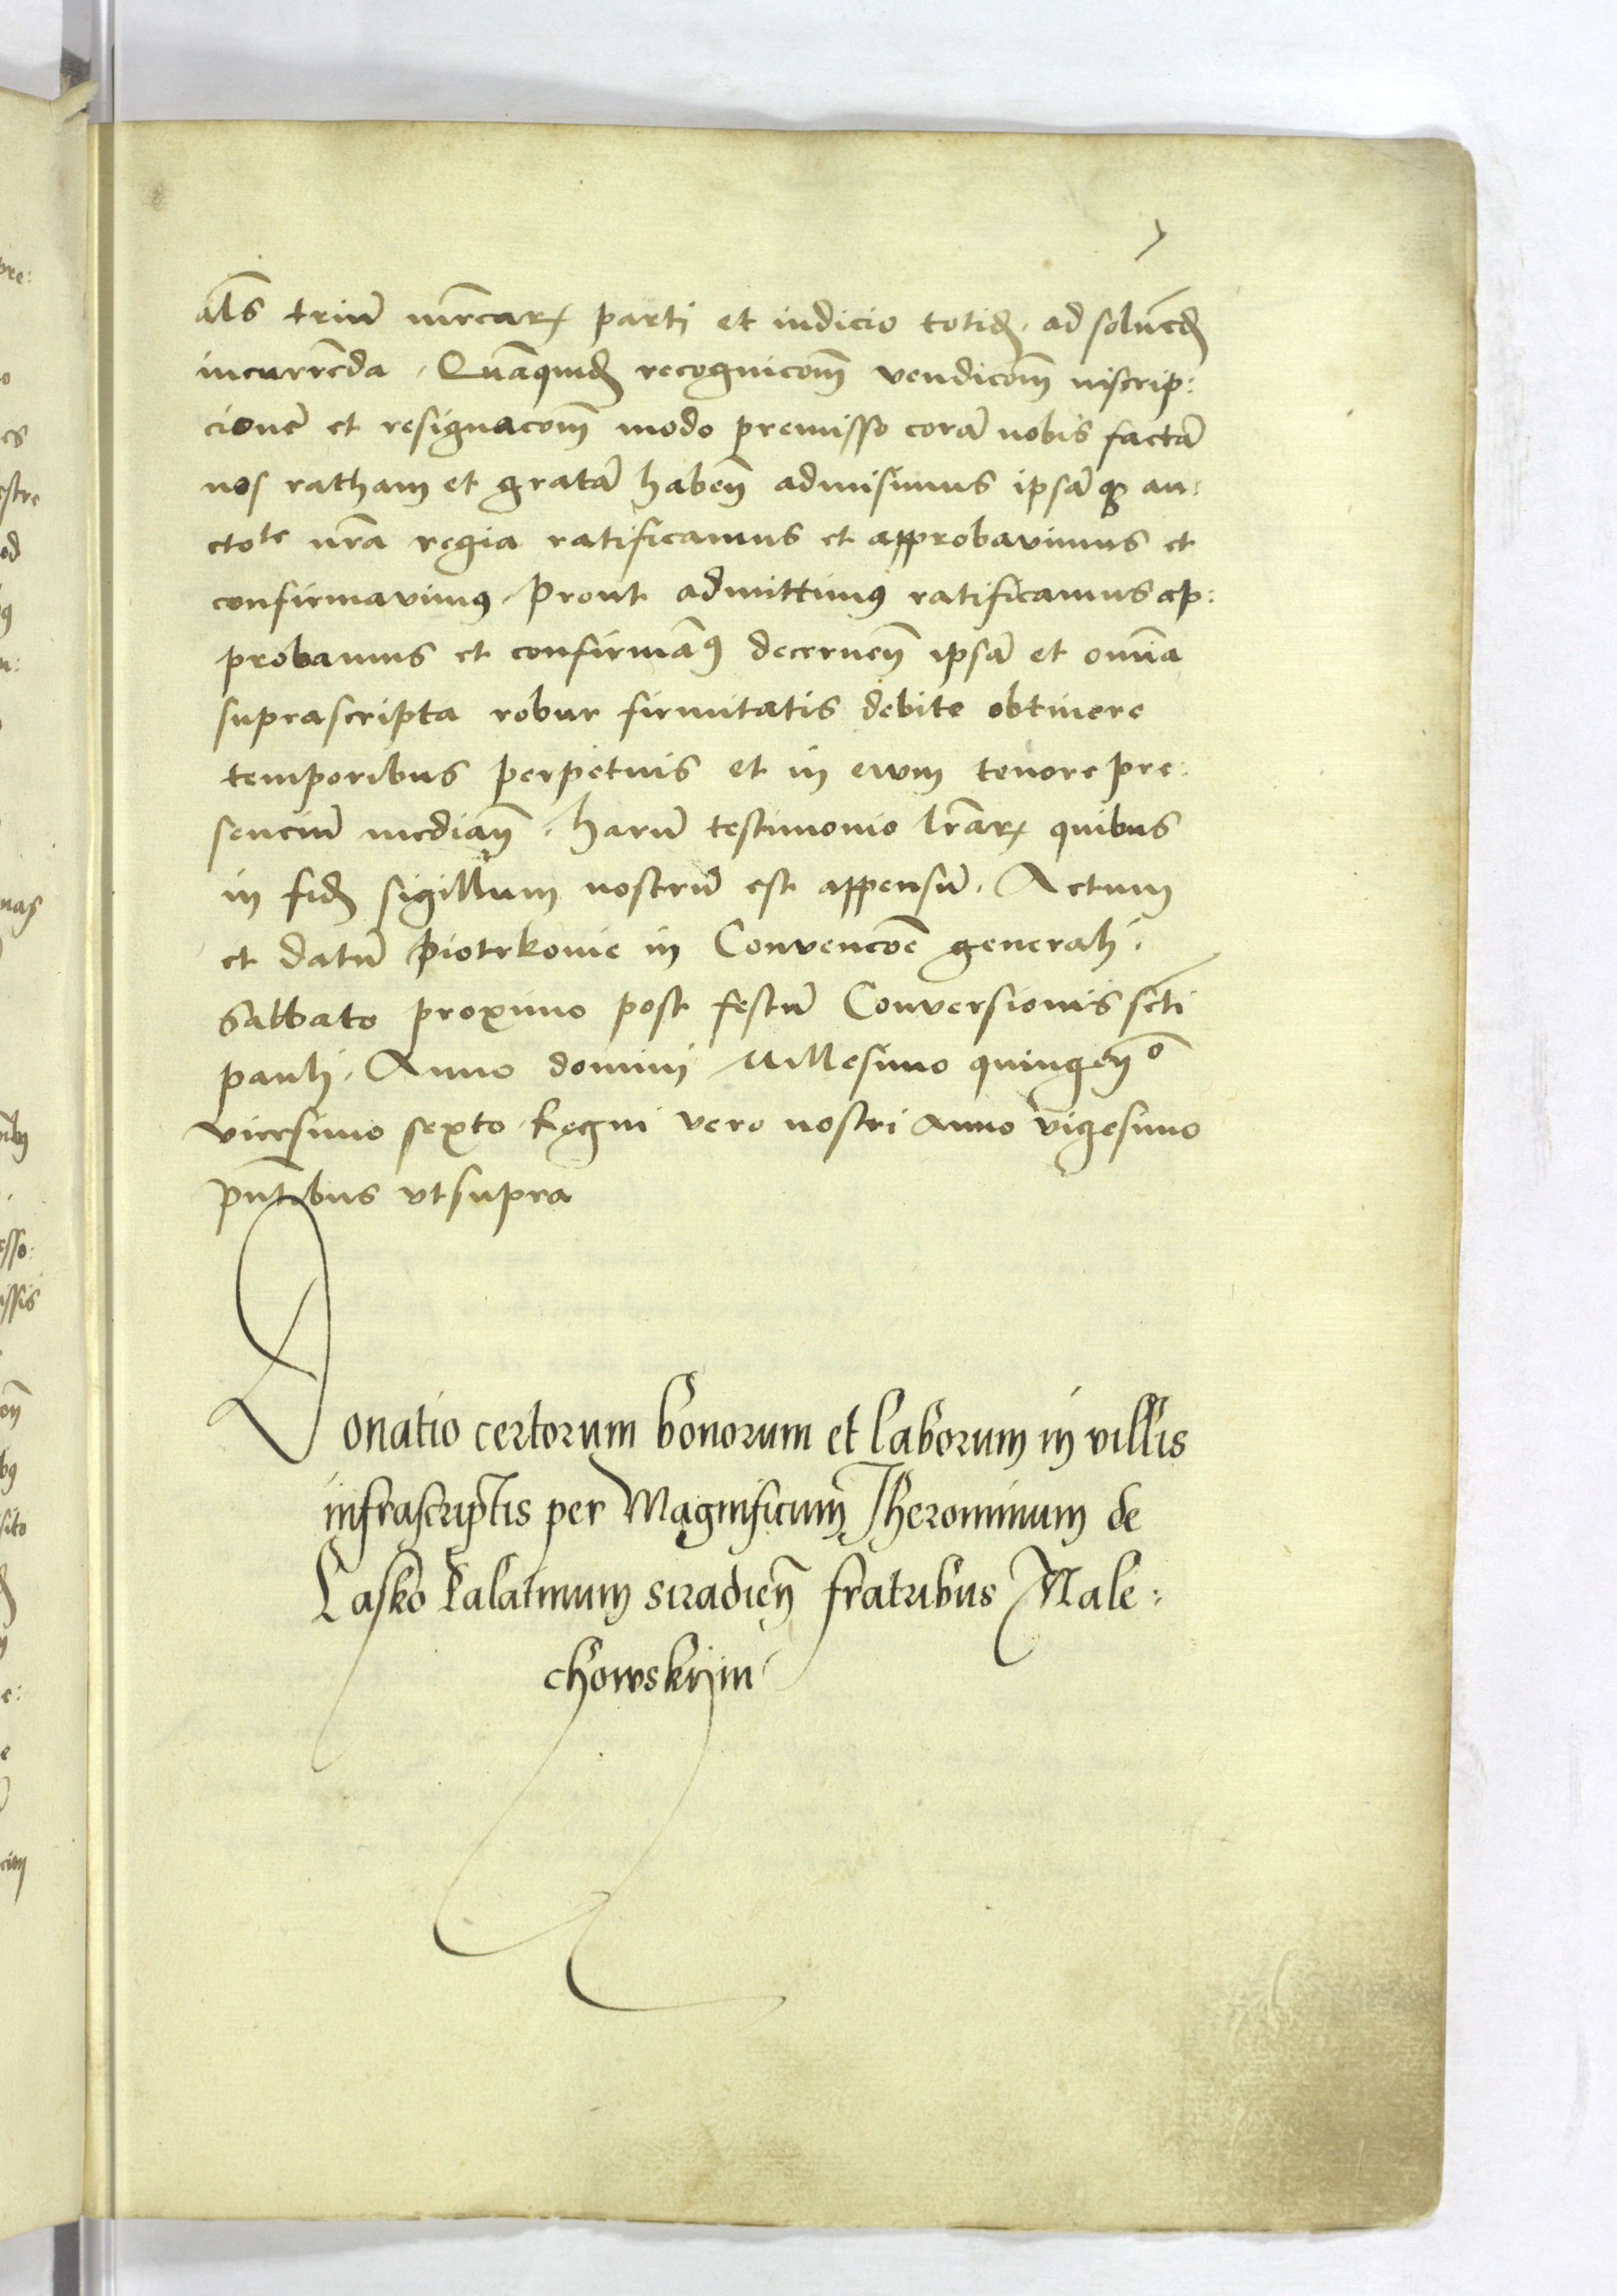 7
al̄s triū mr̄carꝝ parti et iudicio totid̄. ad soluēd̄
incurrēda. Quāquid̄ recognicōm̄ vendicōm̄ inscrip:
cionē et resignacōm̄ modo premisso corā nobis factā
nos ratham et gratā haben̄ admisimus ipsāqꝫ au:
ctote nr̄a regia ratificamus et approbavimus et
confirmavimꝰ. Prout admittimꝰ ratificamus ap:
probamus et confirmāꝰ decernen̄ ipsā et om̄ia
suprascripta robur firmitatis debite obtinere
temporibus perpetuis et in ewm tenore pre:
senciū median̄. harū testimonio lr̄arꝝ quibus
in fid̄ sigillum nostrū est appensū. Actum
et datū Piotrkovie in Convencōe generali.
Sabbato proximo post festū Conversionis scti
pauli. Anno domini Millesimo quingen̄o
vicesimo sexto Regni vero nostri Anno vigesimo
pn̄tibus vt supra
Donatio certorum bonorum et laborum in villis
infrascriptis per Magnificum Jheronimum de
Lasko Palatinum siradien̄ fratribus Male:
chowskijm